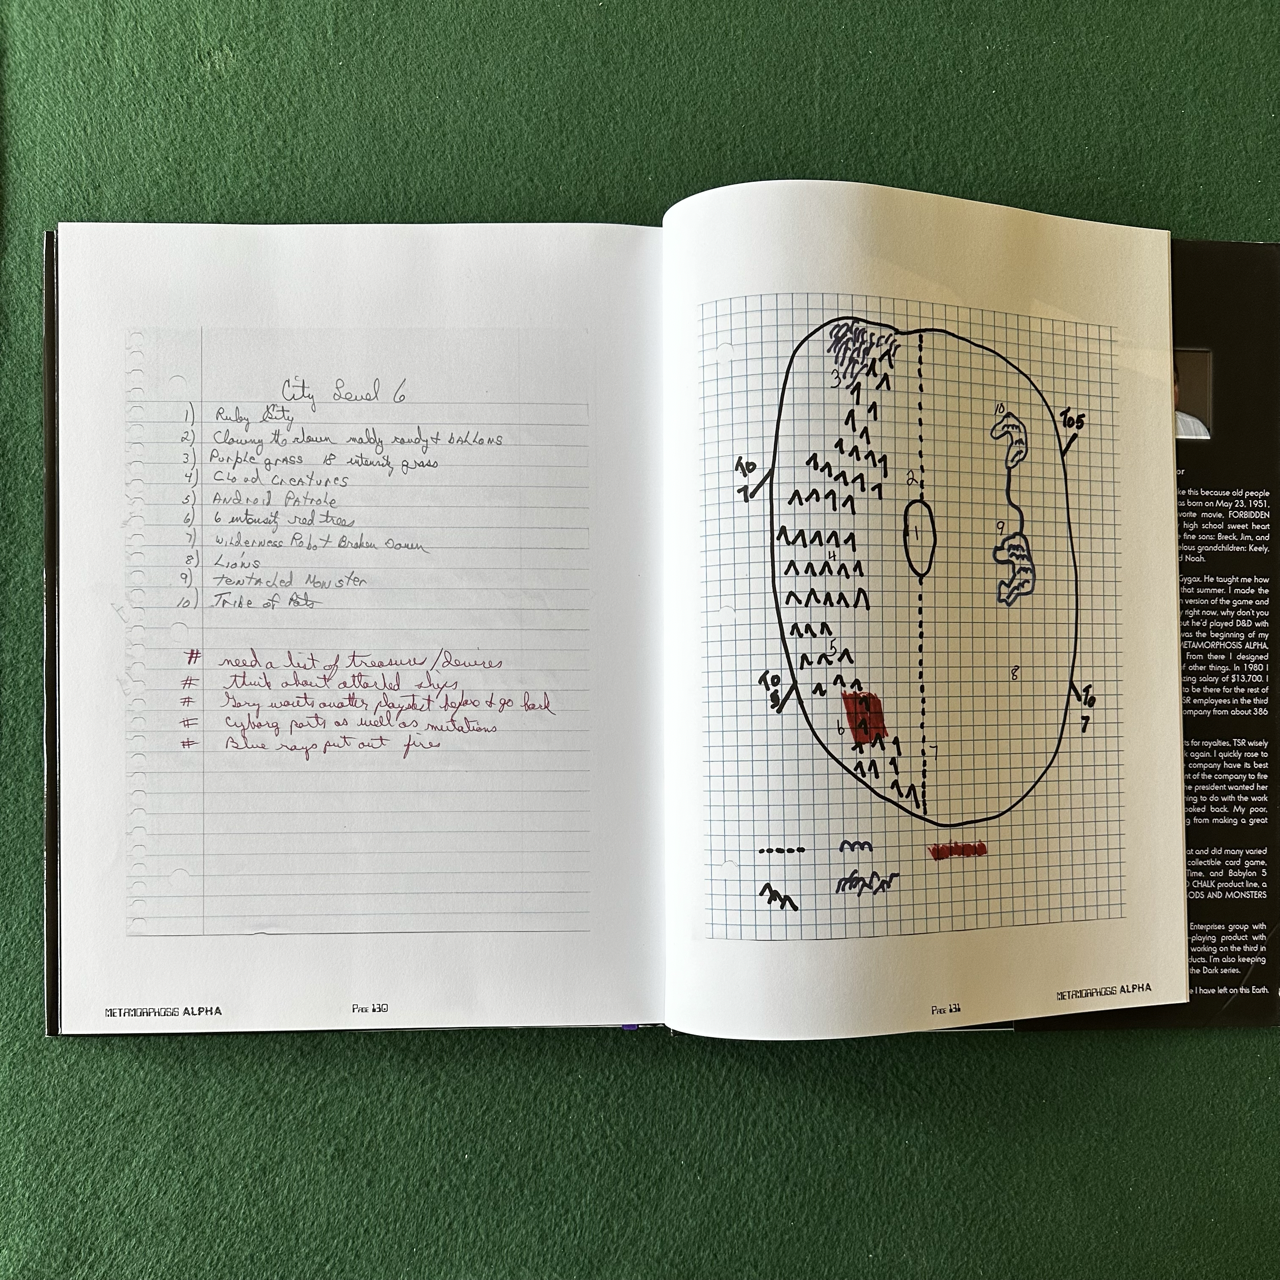 City Level 6
1) Ruby City
2) Clowny the clown candy & BALLOONS
3) Purple grass 18 intensity grass
4) Cloud CREATURES
5) ANdROID PATROLE
6) 6 intensity red trees
7) Wilderness Robot Broken Down
8) Lions
9) Tentacled MoNster
10) Tribe of
# need a list of treasure/devices
# think about attached ships
# Gary wants another playtest & go back
# Cyborg parts as well as mutations
# Blue rays put out fires
METAMORPHOSIS ALPHA
PAGE 130
3
10
To5
To
7
2
1
9
4
5
8
To
5
To
7
6
7
METAMORPHOSIS ALPHA
PAGE 131
or
ke this because old people
as born on May 23, 1951,
vorite movie, FORBIDDEN
high school sweet heart
fine sons: Breck, Jim, and
lous grandchildren: Keely,
d Noah.
Gygax. He taught me how
that summer. I made the
version of the game and
right now, why don't you
ut he'd played D&D with
was the beginning of my
METAMORPHOSIS ALPHA,
From there I designed
of other things. In 1980 I
zing salary of $13,700. I
to be there for the rest of
SR employees in the third
ompany from about 386
s for royalties, TSR wisely
k again. I quickly rose to
company have its best
nt of the company to fire
he president wanted her
ning to do with the work
oked back. My poor,
g from making a great
at and did many varied
collectible card game,
Time, and Babylon 5
D CHALK product line, a
ODS AND MONSTERS
Enterprises group with
-playing product with
working on the third in
ducts. I'm also keeping
the Dark series.
e I have left on this Earth.